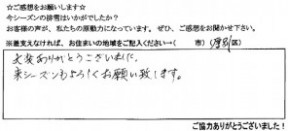 ☆ご感想をお願いします☆
今シーズンの排雪はいかがでしたか？
お客様の声が、私たちの原動力になっています。ぜひ、ご感想をお聞かせ下さい。
※差支えなければ、お住まいの地域をご記入ください…（ 市）（厚別区）
大変ありがとうございました。
来シーズンもよろしくお願い致します。
ご協力ありがとうございました！